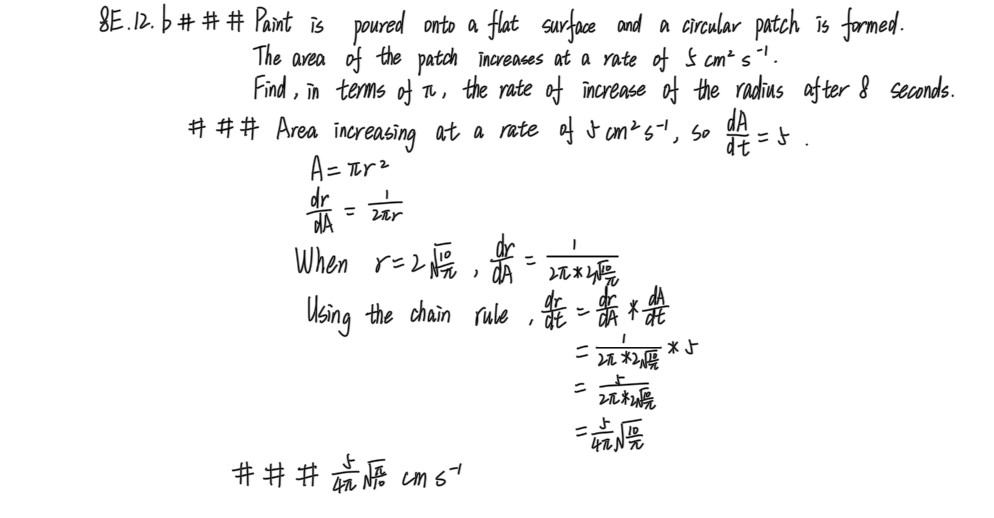 8E.12.b # # # Paint is poured onto a flat surface and a circular patch is formed.
The area of the patch increases at a rate of 5 cm² s⁻¹.
Find, in terms of π, the rate of increase of the radius after 8 seconds.
# # # Area increasing at a rate of 5 cm² s⁻¹, so dA/dt = 5 .
A = πr²
dr/dA = 1/(2πr)
When r = 2√(10/π) , dr/dA = 1/(2π * 2√(10/π))
Using the chain rule , dr/dt = dr/dA * dA/dt
= 1/(2π * 2√(10/π)) * 5
= 5/(2π * 2√(10/π))
= 5/(4π) √(10/π)
# # # 5/(4π) √(π/10) cm s⁻¹